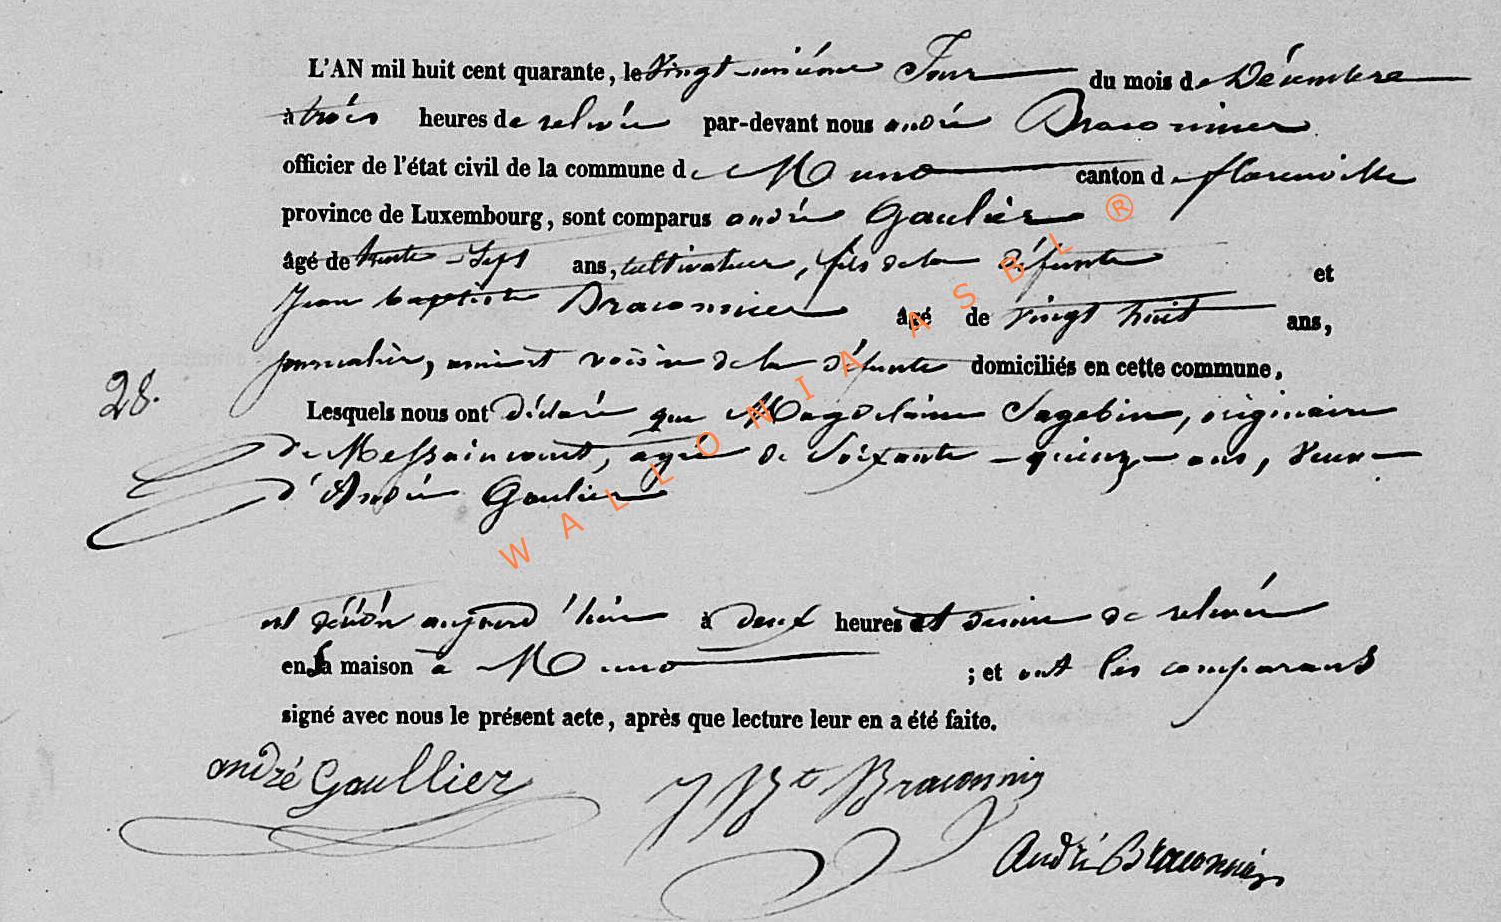 L'AN mil huit cent quarante, le vingt-unième Jour du mois de Décembre
à trois heures de relevée par-devant nous andré Braconnier
officier de l'état civil de la commune de Muno canton de florenville
province de Luxembourg, sont comparus andré Gaulier
âgé de trente-Sept ans, cultivateur, fils de la défunte et
Jean baptiste Braconnier âgé de vingt huit ans,
journalier, ami et voisin de la défunte domiciliés en cette commune.
28.
Lesquels nous ont déclaré que Magdelaine Jagebin, originaire
de Messaincourt, agée de Soixante-quinze ans, veuve
d'André Gaulier
est décédée aujourd'hier à deux heures et demie de relevée
en sa maison à Muno ; et ont les comparans
signé avec nous le présent acte, après que lecture leur en a été faite.
andré Gaullier
J Bte Braconnier
André Braconnier
WALLONIA ASBL ®